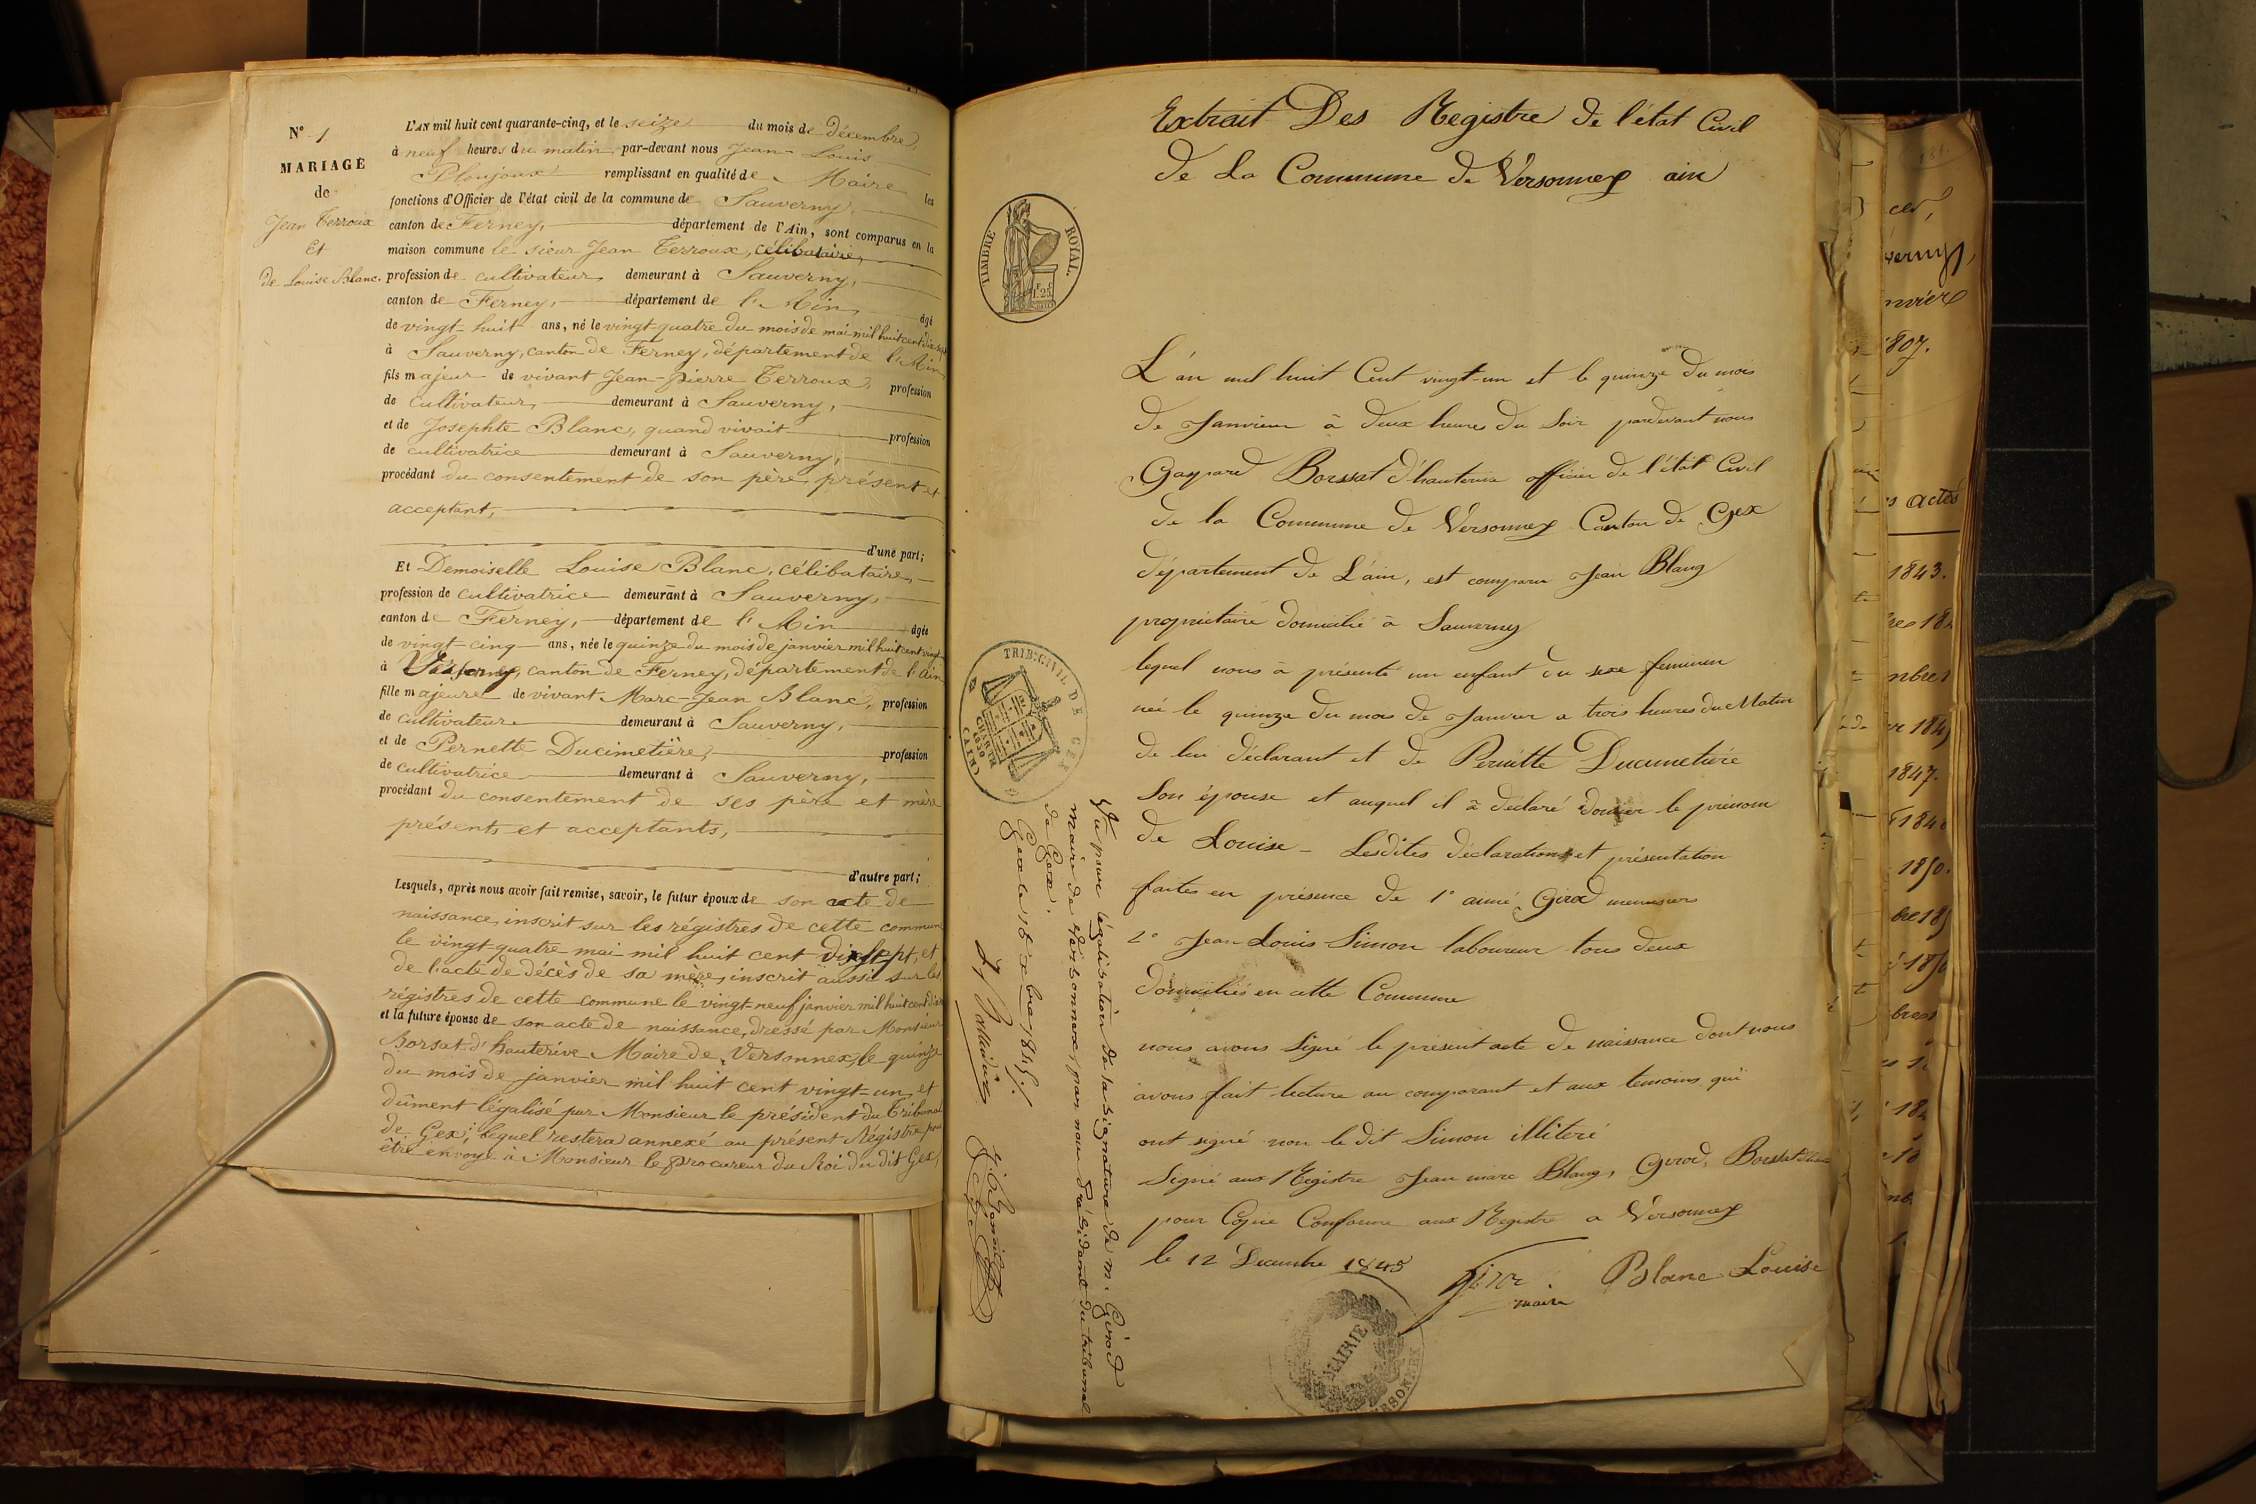 N° 1
MARIAGE
de
Jean Terroux
Et
de Louise Blanc.
L'AN mil huit cent quarante-cinq, et le seize du mois de décembre,
à neuf heures du matin par-devant nous Jean-Louis
Ploujoux remplissant en qualité de Maire les
fonctions d'Officier de l'état civil de la commune de Sauverny,
canton de Ferney, département de l'Ain, sont comparus en la
maison commune le sieur Jean Terroux, célibataire,
profession de cultivateur demeurant à Sauverny,
canton de Ferney, département de l'Ain, âgé
de vingt-huit ans, né le vingt-quatre du mois de mai mil huit cent dix sept
à Sauverny, canton de Ferney, département de l'Ain,
fils majeur de vivant Jean-Pierre Terroux, profession
de cultivateur, demeurant à Sauverny,
et de Josephte Blanc, quand vivait profession
de cultivatrice demeurant à Sauverny,
procédant du consentement de son père, présent et
acceptant,
d'une part;
Et Demoiselle Louise Blanc, célibataire,
profession de cultivatrice demeurant à Sauverny,
canton de Ferney, département de l'Ain âgée
de vingt-cinq ans, née le quinze du mois de janvier mil huit cent vingt
à canton de Ferney, département de l'Ain
fille majeure de vivant Marc-Jean Blanc, profession
de cultivateur demeurant à Sauverny,
et de Pernette Ducimetière, profession
de cultivatrice demeurant à Sauverny,
procédant du consentement de ses père et mère
présents et acceptants,
d'autre part;
Lesquels, après nous avoir fait remise, savoir, le futur époux de son acte de
naissance, inscrit sur les régistres de cette commune
le vingt-quatre mai mil huit cent dix sept, et
de l'acte de décès de sa mère, inscrit aussi sur les
régistres de cette commune le vingt-neuf janvier mil huit cent
et la future épouse de son acte de naissance, dressé par Monsieur
Borsat d'hauterive Maire de Versonnex, le quinze
du mois de janvier mil huit cent vingt-un, et
dûment légalisé par Monsieur le président du Tribunal
de Gex; lequel restera annexé au présent Régistre pour
être envoyé à Monsieur le procureur du Roi du dit Gex,
Extrait Des Registre de l'état Civil
de la Commune de Versonnex ain
TIMBRE ROYAL.
1f.25c
L'an mil huit Cent vingt-un et le quinze du mois
de Janvier à deux heures du soir pardevant nous
Gaspard Borssat d'hauterive officier de l'état Civil
de la Commune de Versonnex Canton de Gex
département de L'ain, est comparu Jean Blanc
propriétaire domicilié à Sauverny
lequel nous à présenté un enfant du sexe feminin
née le quinze du mois de Janvier a trois heures du Matin
de lui déclarant et de Pernette Ducimetière
Son épouse et auquel il à déclaré donner le prénom
de Louise - Lesdites déclarations et présentation
faites en présence de 1° aimé Girod
2° Jean Louis Simon laboureur tous deux
domiciliés en cette Commune
nous avons Signé le présent acte de naissance dont nous
avons fait lecture au comparant et aux temoins qui
ont signé non le dit Simon illiteré
Signé aux Régistre Jean marc Blanc, Girod, Borssat
pour Copie Conforme aux Registre a Versonnex
le 12 Decembre 1845
Girod maire
Blanc Louise
MAIRIE
VERSONNEX
TRIB: CIVIL DE GEX
(AIN)
CHARTE
1830
Vu pour légalisation de la signature de M. Girod
Maire de Versonnex, par nous Président du tribunal
de Gex.
Gex le 15 xbre 1845.